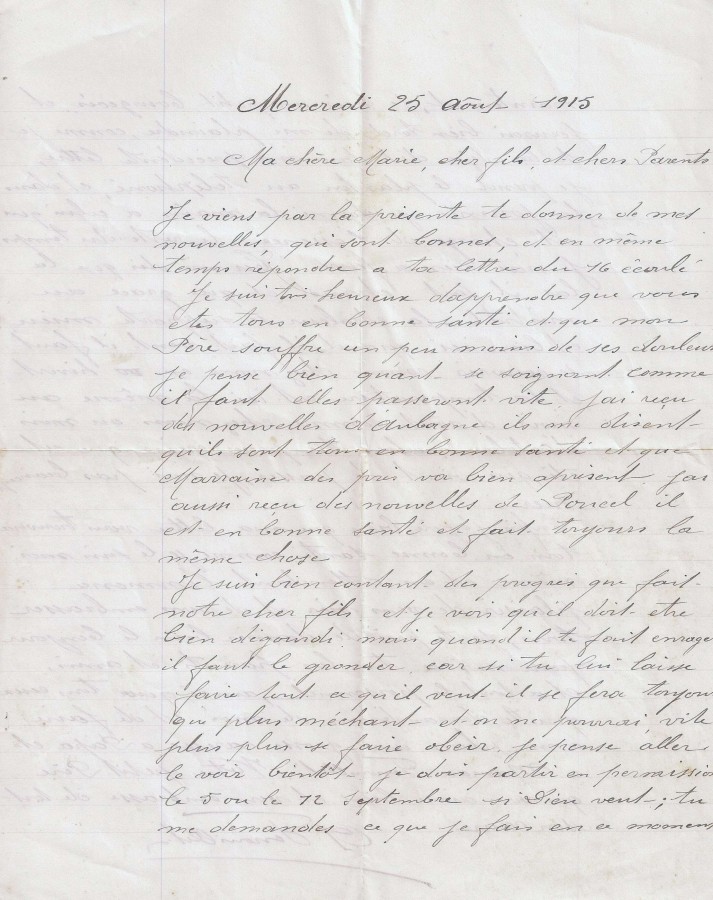 Mercredi 25 Août 1915
Ma chère Marie, cher fils, et chers Parents
Je viens par la présente te donner de mes
nouvelles, qui sont bonnes, et en même
temps répondre a ta lettre du 16 écoulé
Je suis très heureux d'apprendre que vous
etes tous en bonne santé et que mon
Père souffre un peu moins de ses douleurs
je pense bien quant se soignant comme
il faut elles passeront vite. j'ai reçu
des nouvelles d'Aubagne ils me disent
qu'ils sont tous en bonne santé et que
Marraine des près va bien apresent. j'ai
aussi reçu des nouvelles de Poucel il
est en bonne santé et fait toujours la
même chose
Je suis bien contant des progrès que fait
notre cher fils et je vois qu'il doit etre
bien dégourdi. mais quand il te fait enrager
il faut le gronder car si tu lui laisse
faire tout ce qu'il veut il se fera toujours
que plus méchant et on ne pourrai vite
plus plus se faire obeir. je pense aller
le voir bientôt je dois partir en permission
le 5 ou le 12 Septembre si Dieu veut; tu
me demandes ce que je fais en ce moment